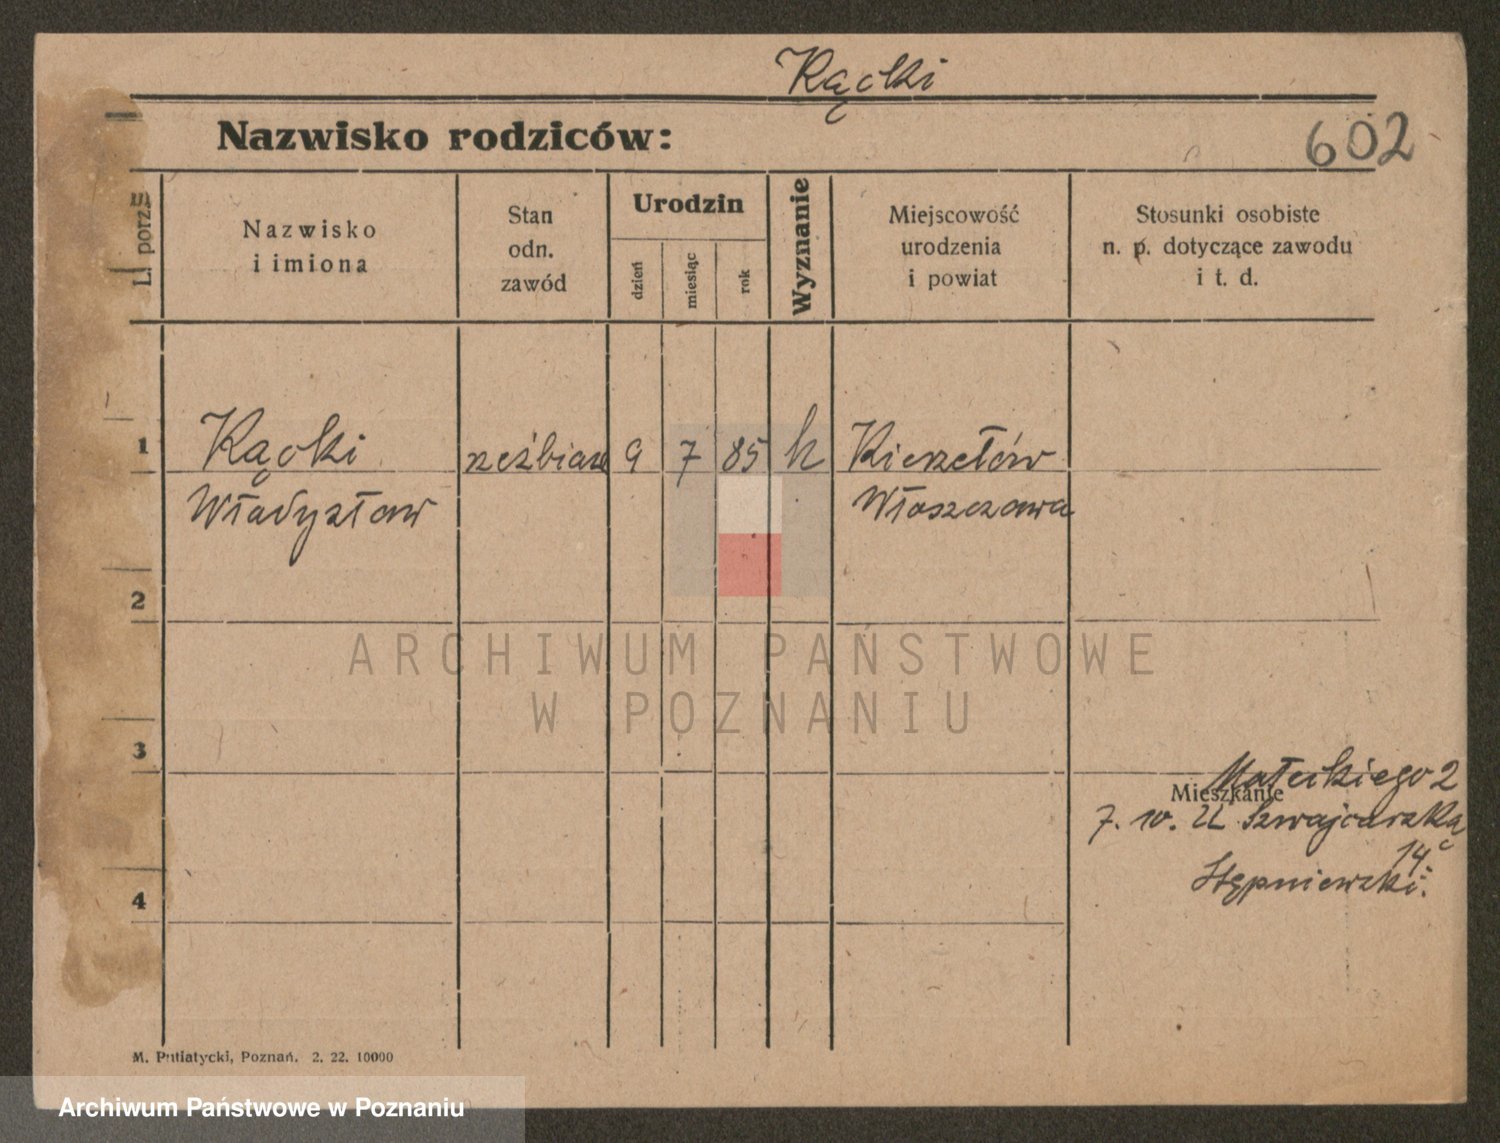 Kącki
602
Nazwisko rodziców:
L. porz.
Nazwisko
i imiona
Stan
odn.
zawód
Urodzin
dzień
miesiąc
rok
Wyznanie
Miejscowość
urodzenia
i powiat
Stosunki osobiste
n. p. dotyczące zawodu
i t. d.
1
Kącki
rzeźbiarz
9
7
85
k
Kierzełów
Władysław
Włoszczowa
2
ARCHIWUM PAŃSTWOWE
W POZNANIU
3
Małeckiego 2
Mieszkanie
7. 10. 22 Szwajcarska
14
Stępniewski.
4
M. Putiatycki, Poznań. 2. 22. 10000
Archiwum Państwowe w Poznaniu